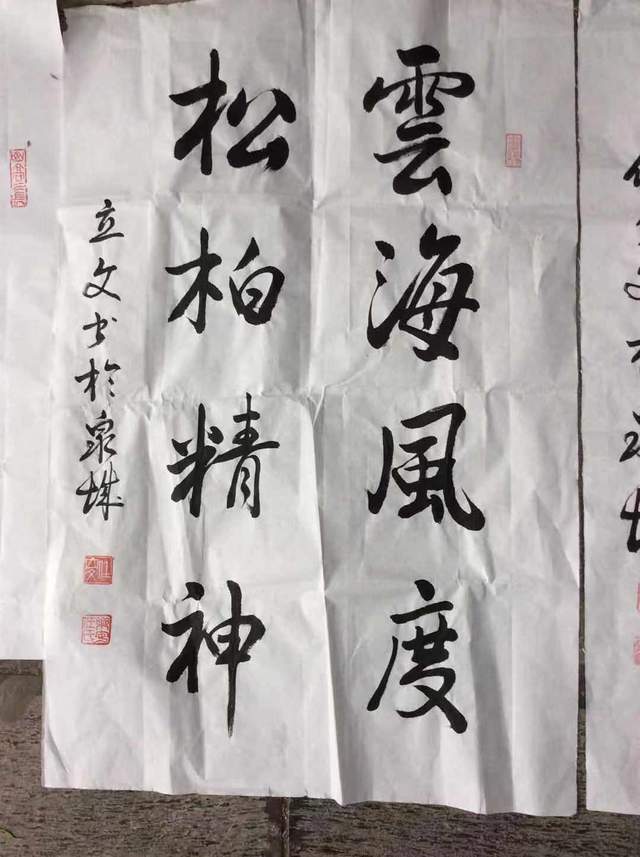 雲海風度
松柏精神
立文书於泉城